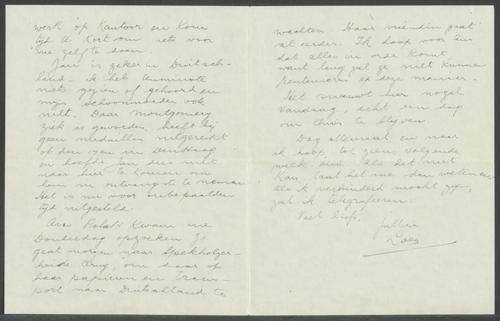 werk op Kantoor en kom
tijd te kort om iets voor
me zelf te doen.
Jan is zeker in Duitsch-
land - ik heb tenminste
niets gezien of gehoord en
mijn schoonmoeder ook
niet. Daar Montgomery
ziek is geworden, heeft hij
geen medailles uitgereikt
op den 19en in den Haag
en hoefde Jan dus niet
naar hier te komen om
hem in ontvangst te nemen
Het is nu voor onbepaalden
tijd uitgesteld.
Kwam me
Donderdag opzoeken. Ze
gaat morgen naar Spekholzer-
heide terug, om daar op
haar papieren en trans-
port naar Duitschland te
wachten. Haar vriendin gaat
al eerder. Ik hoop voor hen
dat alles in orde komt
want lang zal ze niet kunnen
op deze manier.
Het sneeuwt hier nogal
vandaag, echt een dag
om thuis te blijven
Dag allemaal en naar
ik hoop, tot ziens volgende
week. Als het niet
kan, laat het me dan weten en
als ik verhinderd mocht zijn,
zal ik telegraferen.
Veel liefs,
jullie